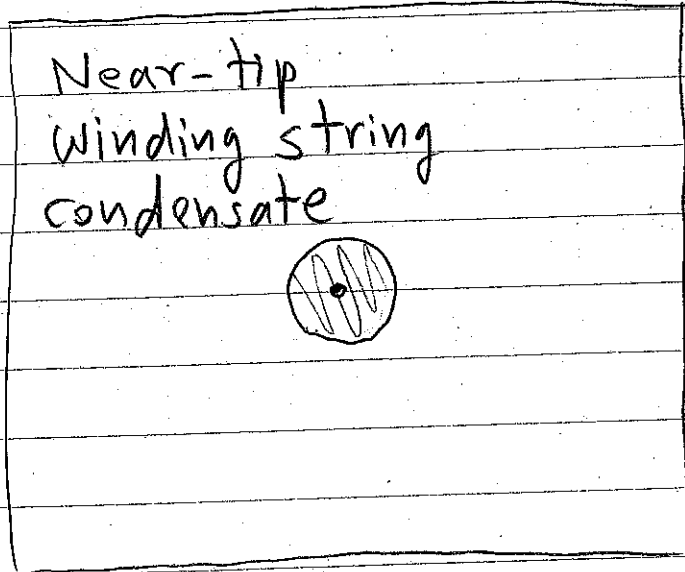 Near-tip
winding string
condensate